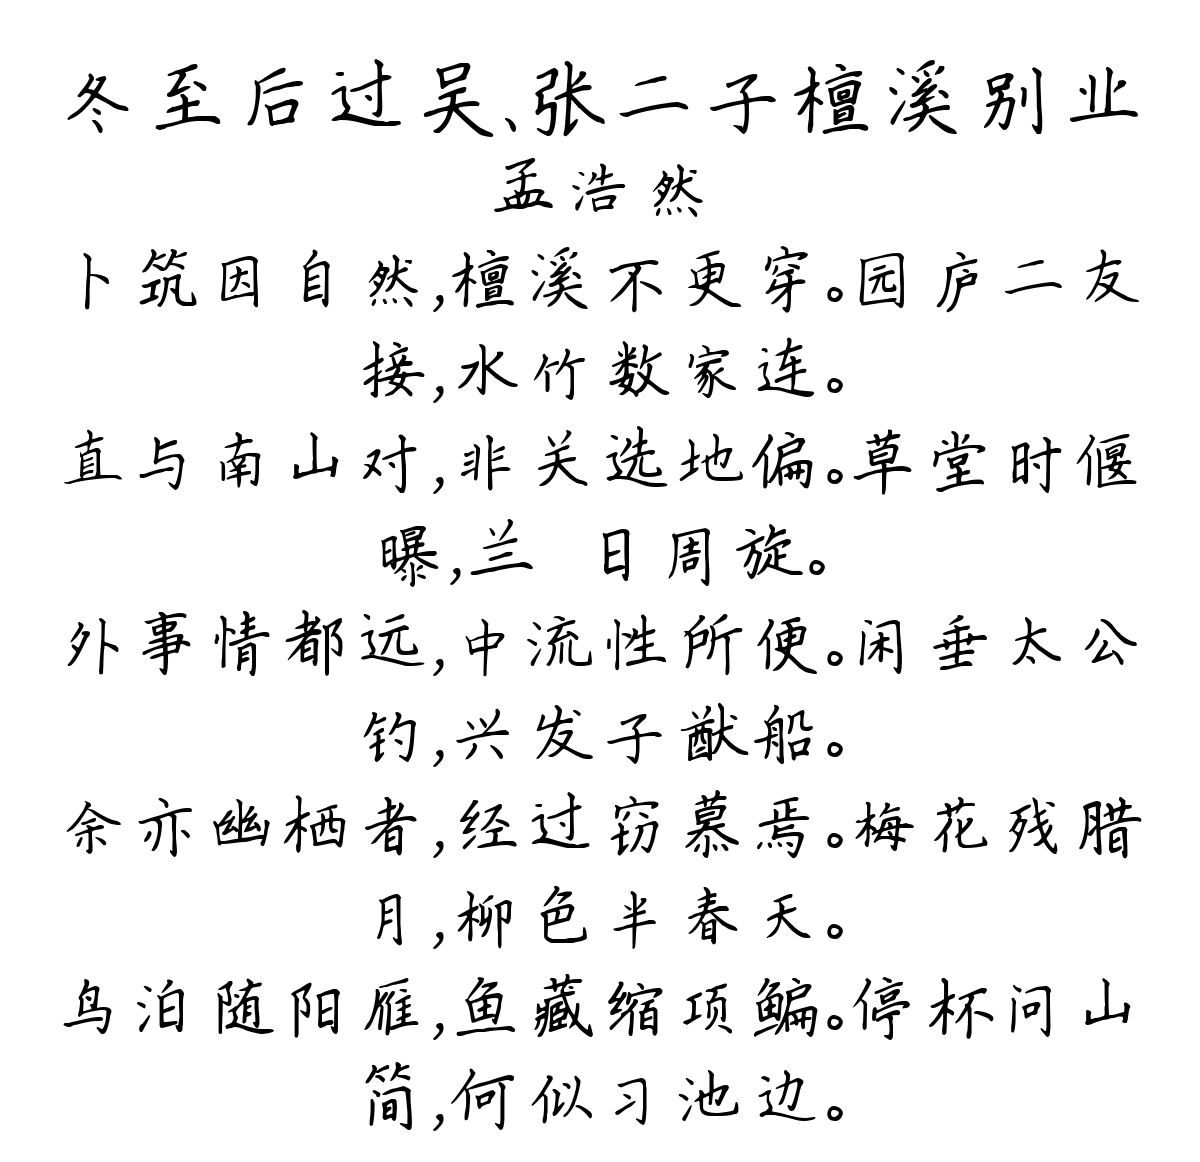 冬至后过吴、张二子檀溪别业
孟浩然
卜筑因自然,檀溪不更穿。园庐二友
接,水竹数家连。
直与南山对,非关选地偏。草堂时偃
曝,兰 日周旋。
外事情都远,中流性所便。闲垂太公
钓,兴发子猷船。
余亦幽栖者,经过窃慕焉。梅花残腊
月,柳色半春天。
鸟泊随阳雁,鱼藏缩项鳊。停杯问山
简,何似习池边。